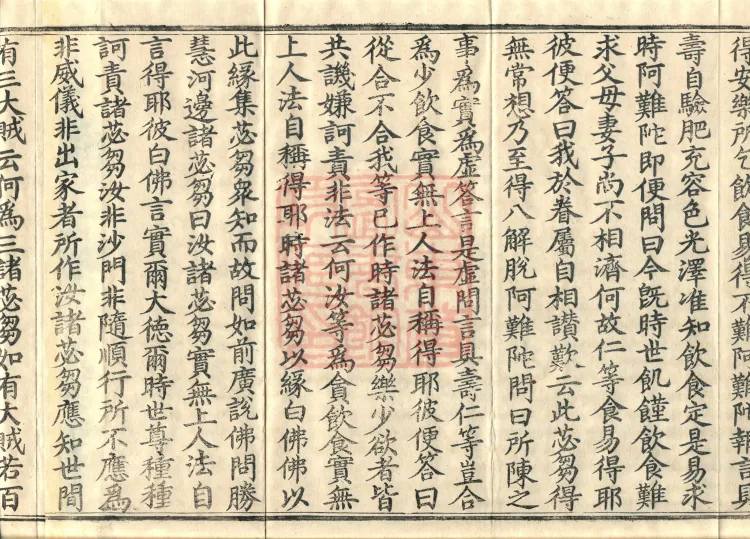 得安樂所乞飲食易得不難陀難陀報言具
壽自驗肥充容色光澤准知飲食定是易求
時阿難陀即便問曰今既時世飢饉飲食難
求父母妻子尚不相濟何故仁等食易得耶
彼便答曰我於眷屬自相讃歎云此苾芻得
無常想乃至得八解脫阿難陀問曰所陳之
事爲實爲虛答言是虛問言具壽仁等豈合
爲少飲食實無上人法自稱得耶彼便答曰
從合不合我等已作時諸苾芻樂少欲者皆
共譏嫌訶責非法云何汝等爲貪飲食實無
上人法自稱得耶時諸苾芻以緣白佛佛以
此緣集苾芻衆知而故問如前廣說佛問勝
慧河邊諸苾芻曰汝諸苾芻實無上人法自
言得耶彼白佛言實爾大德爾時世尊種種
訶責諸苾芻汝非沙門非隨順行所不應爲
非威儀非出家者所作汝諸苾芻應知世間
有三大賊云何爲三諸苾芻如有大賊若百